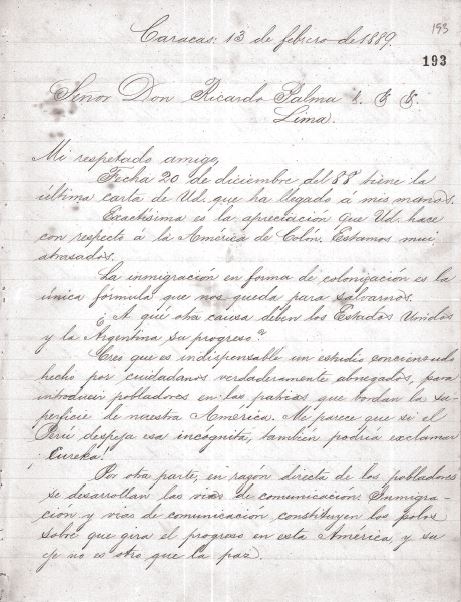 193
Caracas: 13 de febrero de 1889.
193
Señor Don Ricardo Palma &. &. &.
Lima.
Mi respetado amigo,
Fecha 20 de diciembre del 88 tiene la
última carta de Ud. que ha llegado á mis manos.
Exactísima es la apreciación que Ud. hace
con respecto á la América de Colón. Estamos mui
atrasados.
La inmigración en forma de colonización es la
única fórmula que nos queda para salvarnos.
¿A qué otra causa deben los Estados Unidos
y la Argentina su progreso?
Creo que es indispensable un estudio concienzudo
hecho por cuidadanos verdaderamente abnegados, para
introducir pobladores en las patrias que bordan la su-
perficie de nuestra América. Me parece que si el
Perú despeja esa incognita, también podría exclamar
¡Eureka!
Por otra parte, en razón directa de los pobladores
se desarrollan las vías de comunicación. Inmigra-
ción y vías de comunicación constituyen los polos
sobre que gira el progreso en esta América, y su
eje no es otro que la paz.